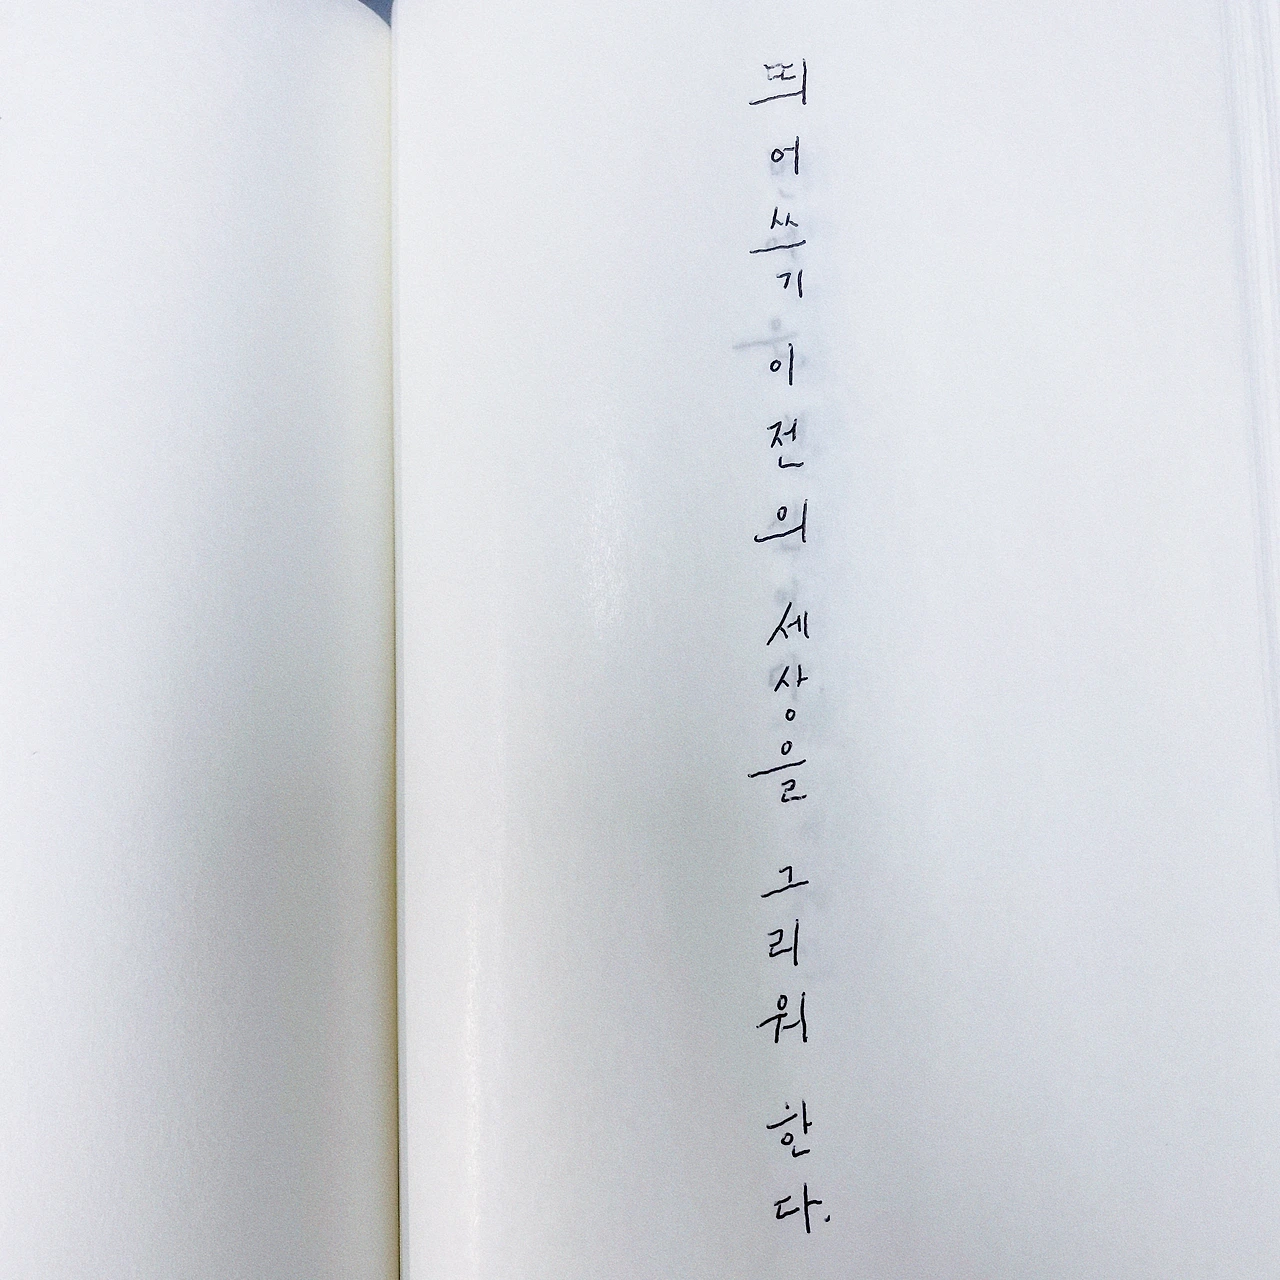 띄어쓰기 이전의 세상을 그리워 한다.